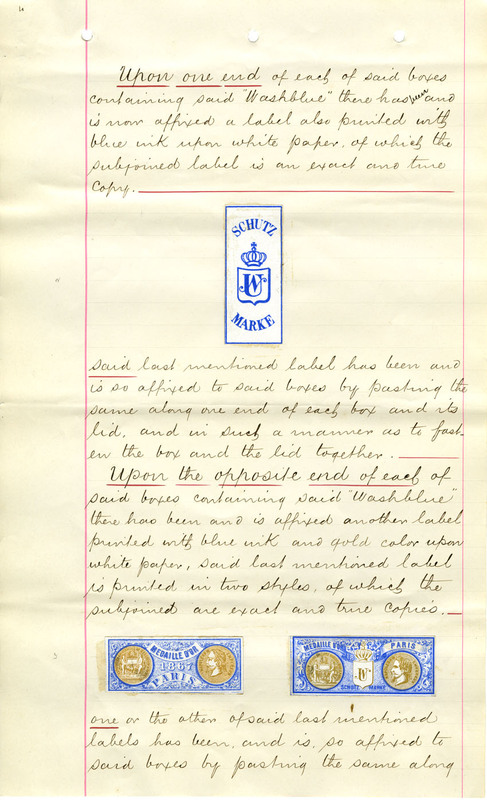 Upon one end of each of said boxes
containing said "Washblue" there has been and
is now affixed a label also printed with
blue ink upon white paper, of which the
subjoined label is an exact and true
copy.
SCHUTZ
WU
MARKE
said last mentioned label has been and
is so affixed to said boxes by pasting the
same along one end of each box and its
lid, and in such a manner as to fast-
en the box and the lid together.
Upon the opposite end of each of
said boxes containing said "Washblue"
there has been and is affixed another label
printed with blue ink and gold color upon
white paper, said last mentioned label
is printed in two styles, of which the
subjoined are exact and true copies.
MEDAILLE D'OR
1867
PARIS
MEDAILLE D'OR PARIS
WU
SCHUTZ MARKE
one or the other of said last mentioned
labels has been, and is, so affixed to
said boxes by pasting the same along